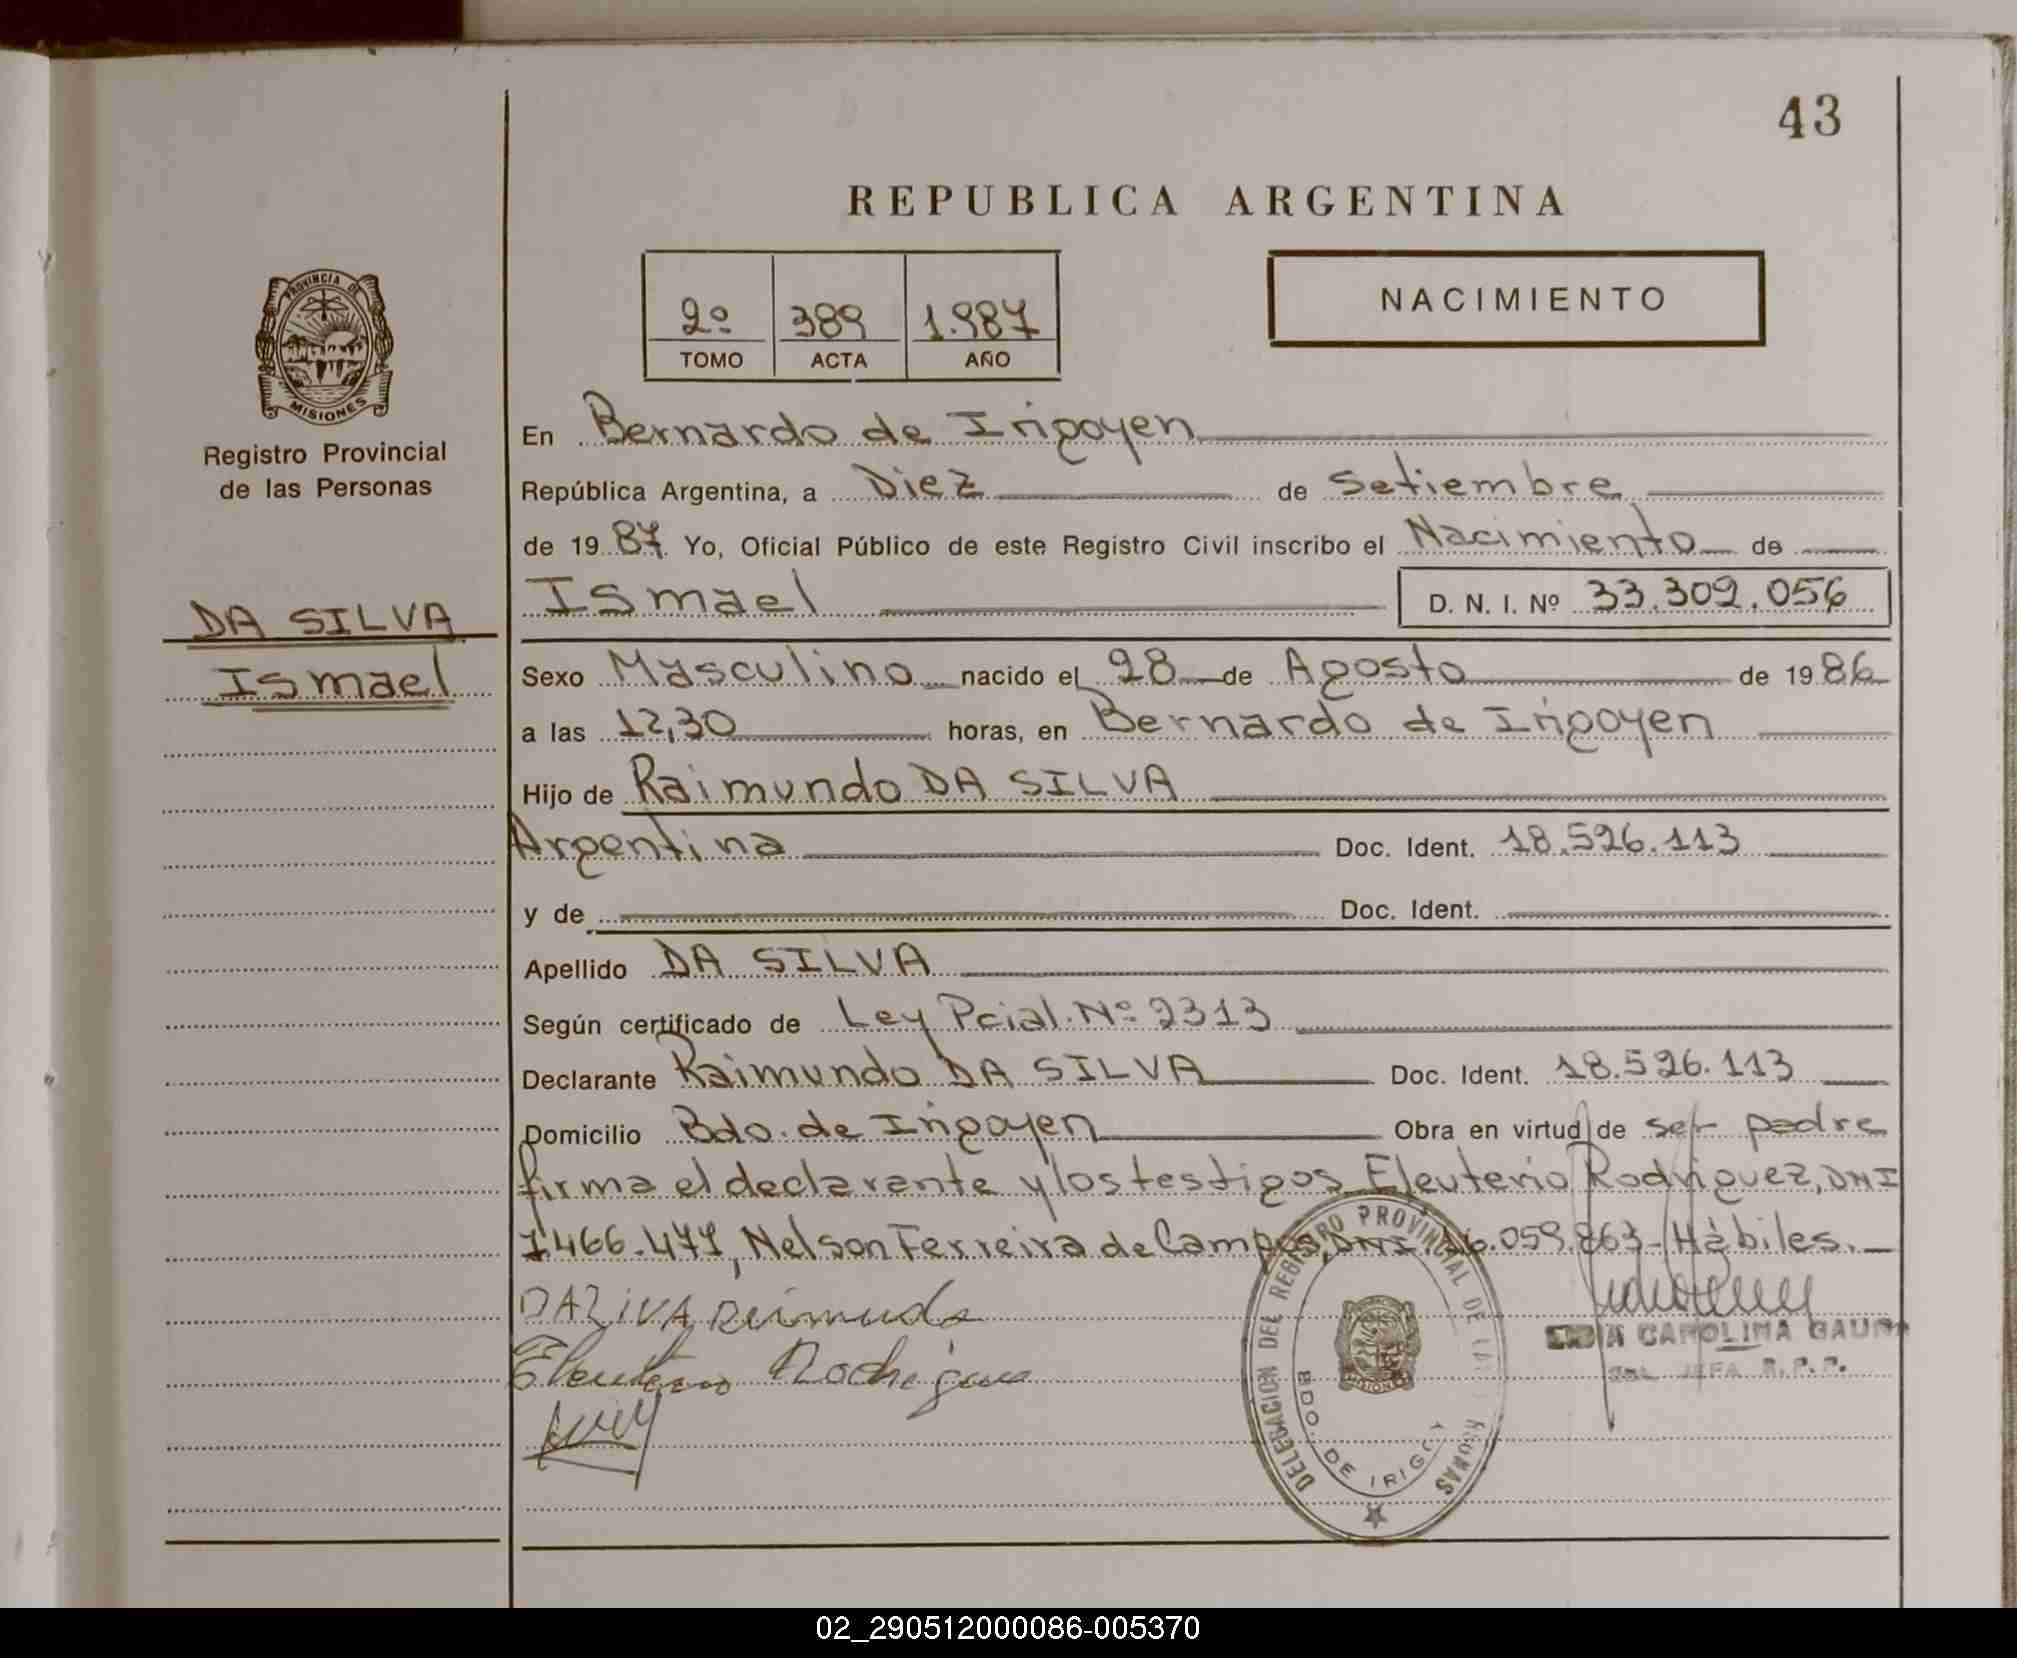 43
REPUBLICA ARGENTINA
PROVINCIA DE
MISIONES
Registro Provincial
de las Personas
2º 389 1.987
TOMO ACTA AÑO
NACIMIENTO
En Bernardo de Irigoyen
República Argentina, a Diez de Setiembre
de 1987. Yo, Oficial Público de este Registro Civil inscribo el Nacimiento de
Ismael D. N. I. Nº 33.309.056
DA SILVA
Ismael
Sexo Masculino nacido el 28 de Agosto de 1986
a las 12,30 horas, en Bernardo de Irigoyen
Hijo de Raimundo DA SILVA
Argentina Doc. Ident. 18.526.113
y de Doc. Ident.
Apellido DA SILVA
Según certificado de Ley Pcial. Nº 2313
Declarante Raimundo DA SILVA Doc. Ident. 18.526.113
Domicilio Bdo. de Irigoyen Obra en virtud de ser padre
firma el declarante y los testigos Eleuterio Rodriguez, DNI
7.466.471, Nelson Ferreira de Campos, DNI. 16.059.863- Hábiles.
DAZiVA Reimundo
Eleuterio Rodrigues
DELEGACION DEL REGISTRO PROVINCIAL DE LAS PERSONAS
BDO. DE IRIGOY
MISIONES
CAROLINA GAUNA
JEFA R.P.P.
02_290512000086-005370